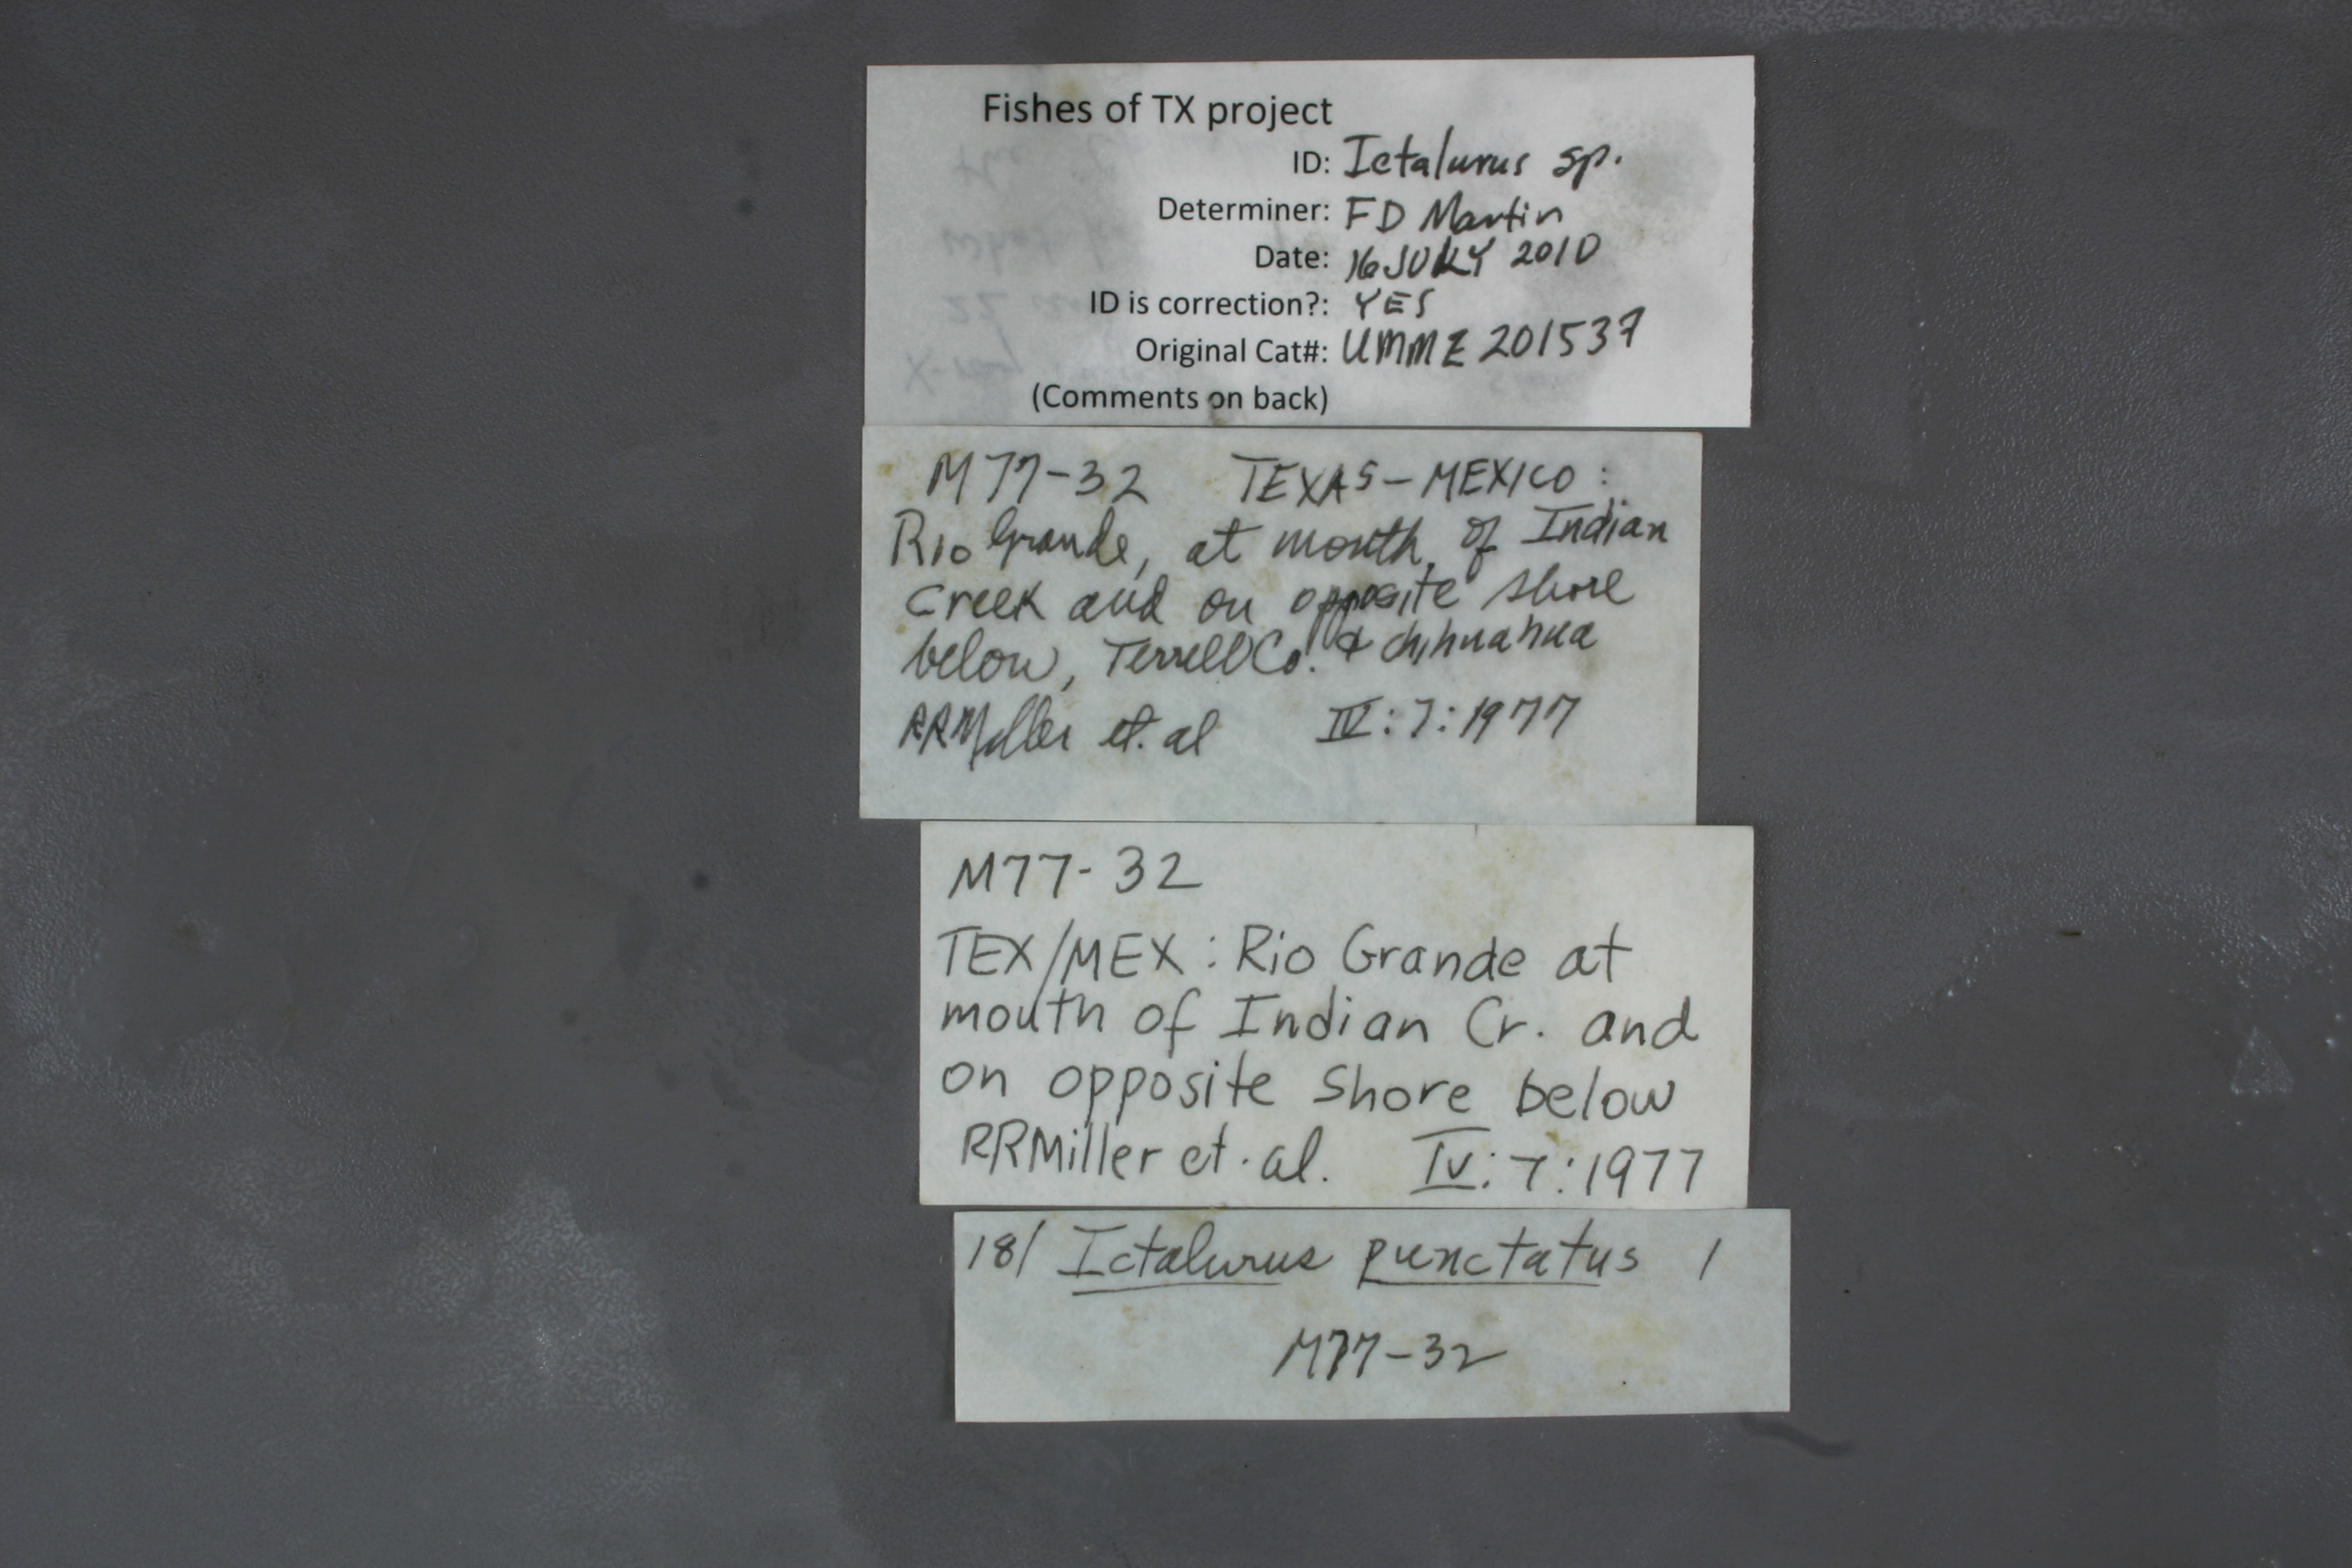 Fishes of TX project
ID: Ictalurus sp.
Determiner: FD Martin
Date: 16 JULY 2010
ID is correction?: YES
Original Cat#: UMMZ 201537
(Comments on back)
M77-32 TEXAS-MEXICO:
Rio Grande, at mouth of Indian
Creek and on opposite shore
below, Terrell Co. & Chihuahua
RRMiller et. al IV:7:1977
M77-32
TEX/MEX: Rio Grande at
mouth of Indian Cr. and
on opposite shore below
RRMiller et. al. IV:7:1977
18/ Ictalurus punctatus 1
M77-32